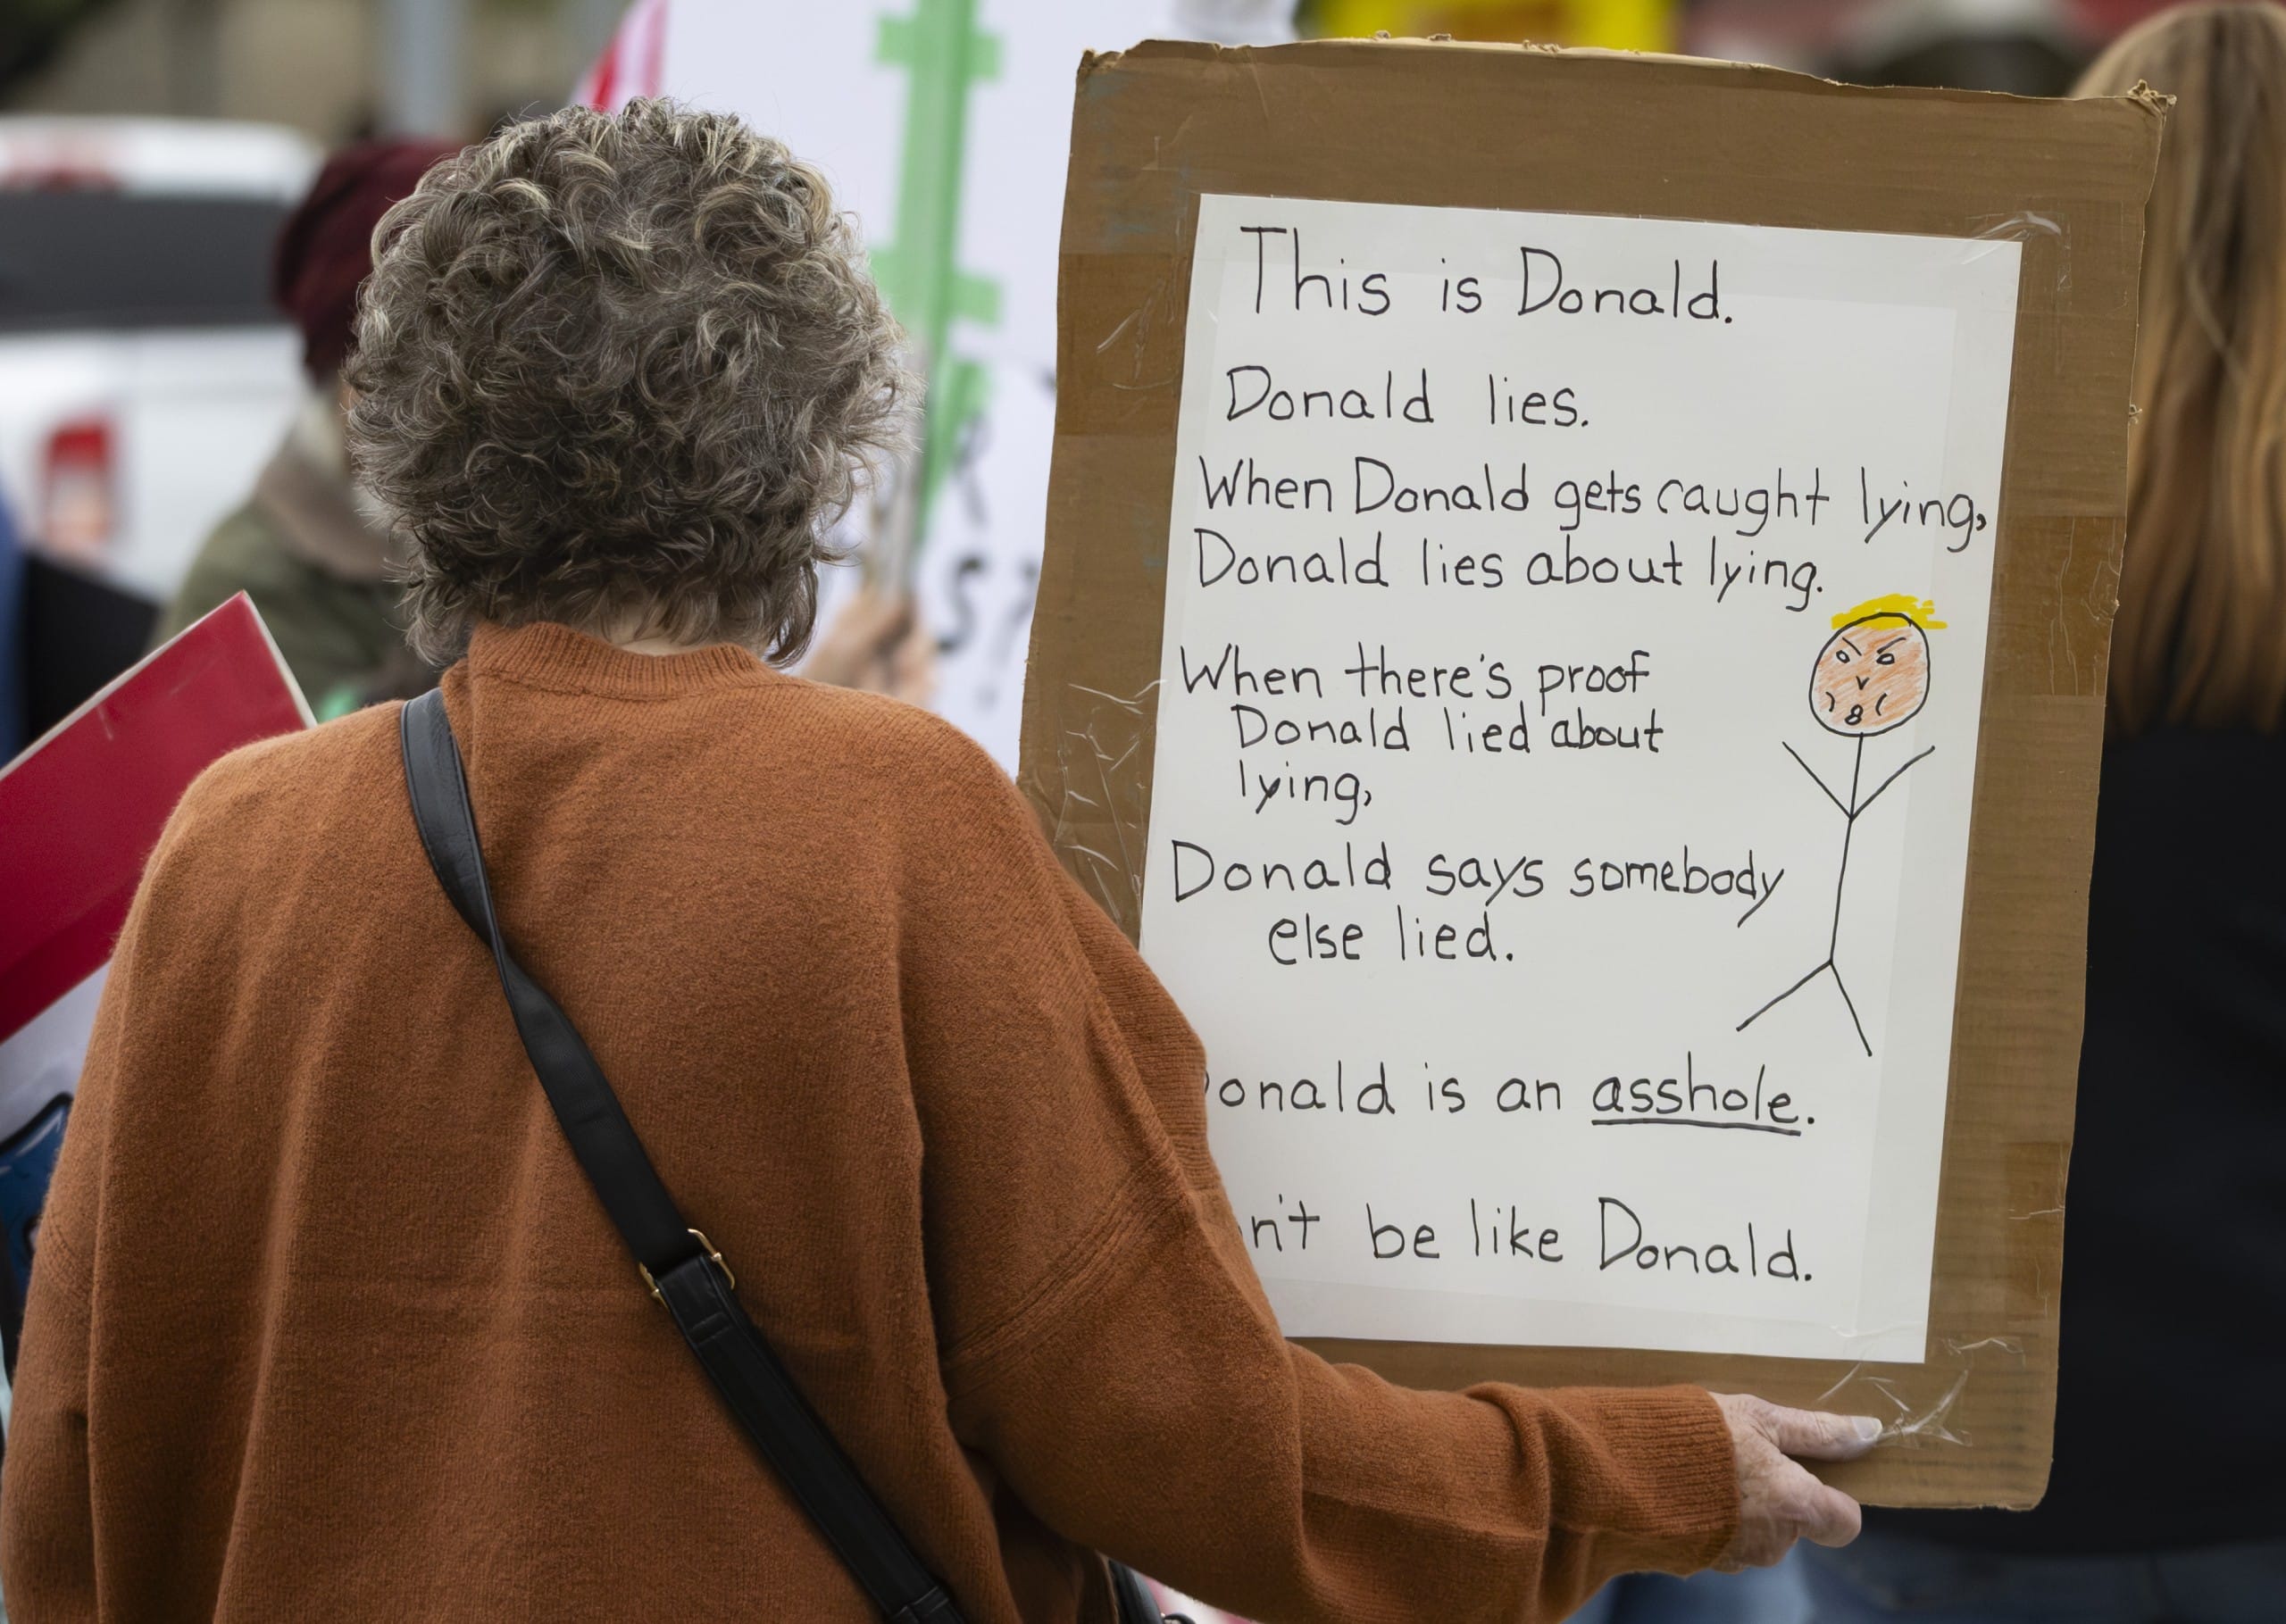 This is Donald.
Donald lies.
When Donald gets caught lying,
Donald lies about lying.
When there's proof
Donald lied about
lying,
Donald says somebody
else lied.
onald is an asshole.
n't be like Donald.